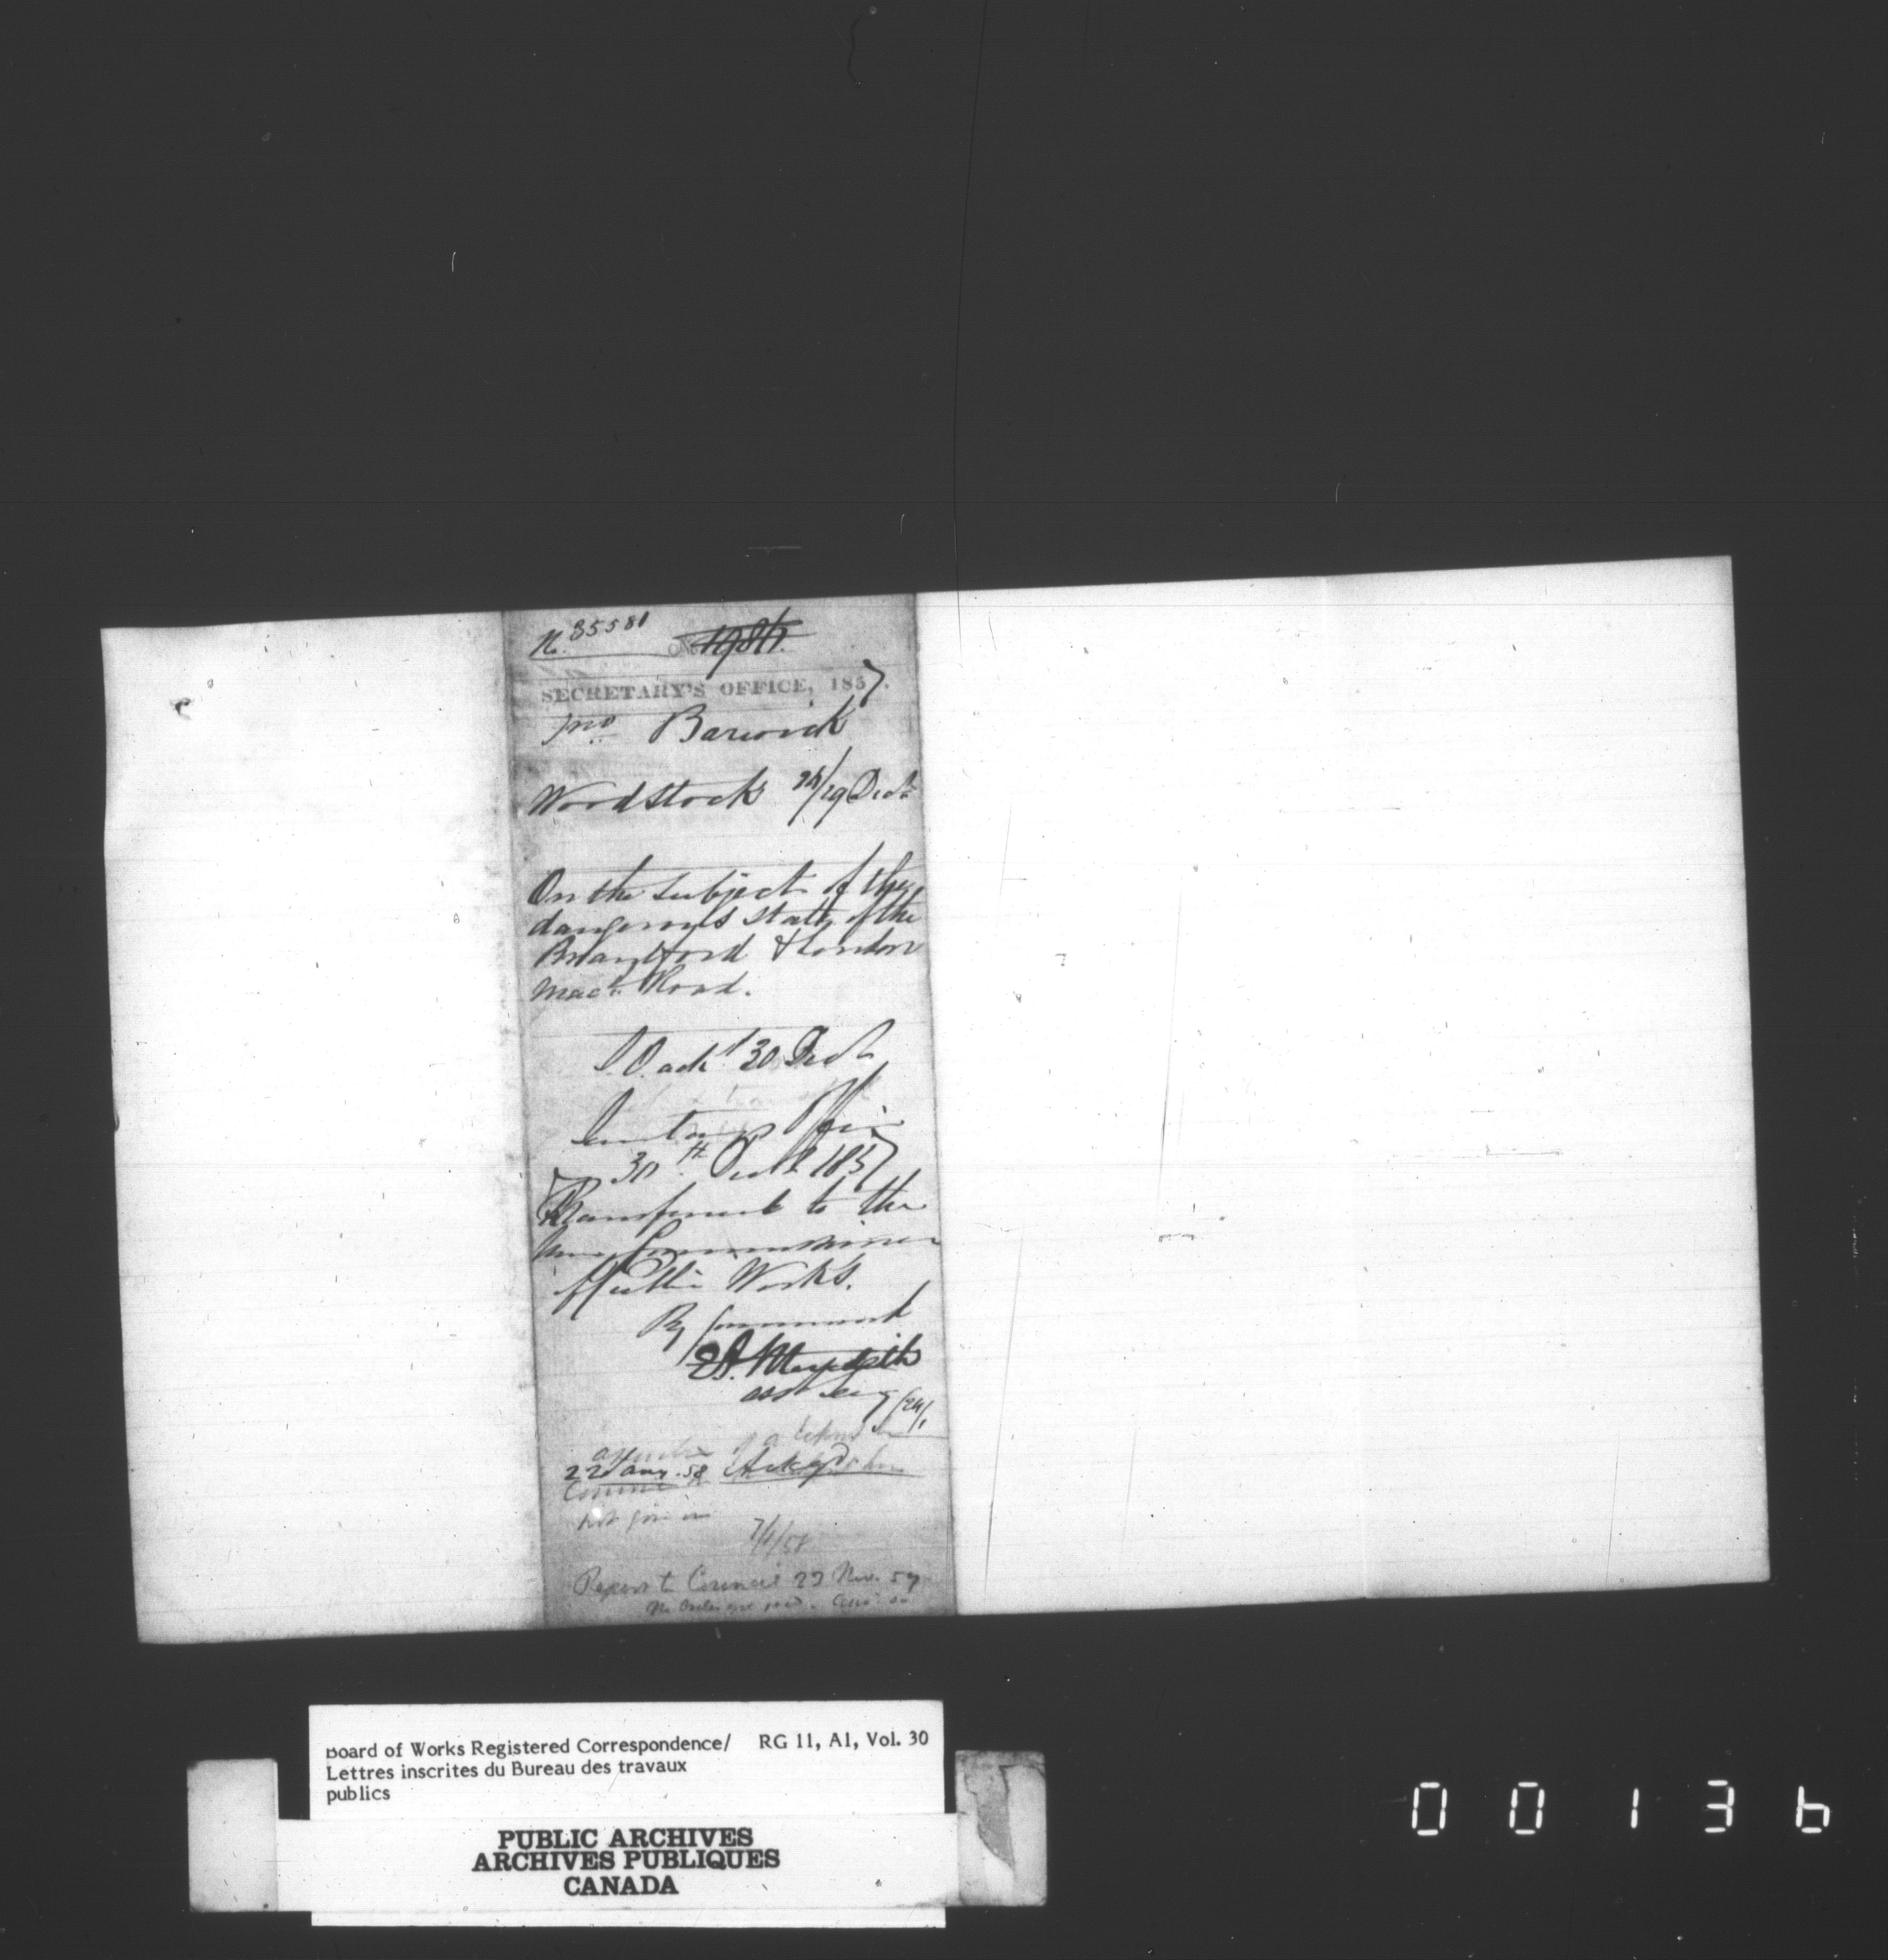 N. 35581
No. 1984.
SECRETARY'S OFFICE, 1857.
Jno Barwick
Woodstock 24/29 Decr
On the subject of the
dangerous state of the
Brantford & London
Macd. Road.
S.O. ackd 30 Decr
Secretary's Office
30th Decr 1857
Transferred to the
Hon. Commissioner
of Public Works.
By Command
E.A. Meredith
asst Secy
22 Jany. 58 Ackgd
not give in
7/1/58
Report to Council 23 Nov. 59
Board of Works Registered Correspondence/ RG 11, A1, Vol. 30
Lettres inscrites du Bureau des travaux
publics
PUBLIC ARCHIVES
ARCHIVES PUBLIQUES
CANADA
00136